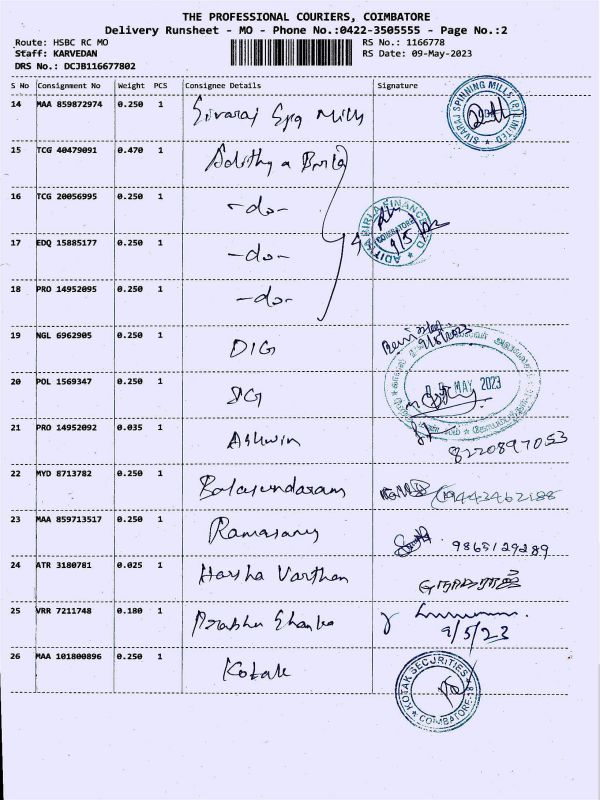 THE PROFESSIONAL COURIERS, COIMBATORE
Delivery Runsheet - MO - Phone No.:0422-3505555 - Page No.:2
Route: HSBC RC MO RS No.: 1166778
Staff: KARVEDAN RS Date: 09-May-2023
DRS No.: DCJB116677802
S No Consignment No Weight PCS Consignee Details Signature
14 MAA 859872974 0.250 1 Sivaraj Spg Mills
SIVARAJ SPINNING MILLS (P) LIMITED
15 TCG 40479091 0.470 1 Adithya Birla
16 TCG 20056995 0.250 1 -do-
ADITYA BIRLA FINANCE LTD
COIMBATORE
17 EDQ 15885177 0.250 1 -do-
18 PRO 14952095 0.250 1 -do-
19 NGL 6962905 0.250 1 DIG
9/5/2023
20 POL 1569347 0.250 1 SG
MAY 2023
21 PRO 14952092 0.035 1 Ashwin
8220897053
22 MYD 8713782 0.250 1 Balasundaram 9442462188
23 MAA 859713517 0.250 1 Ramasamy 9865129289
24 ATR 3180781 0.025 1 Harsha Varthan
25 VRR 7211748 0.180 1 Prabhu Shanka
9/5/23
26 MAA 101800896 0.250 1 Kotak
KOTAK SECURITIES
COIMBATORE-18